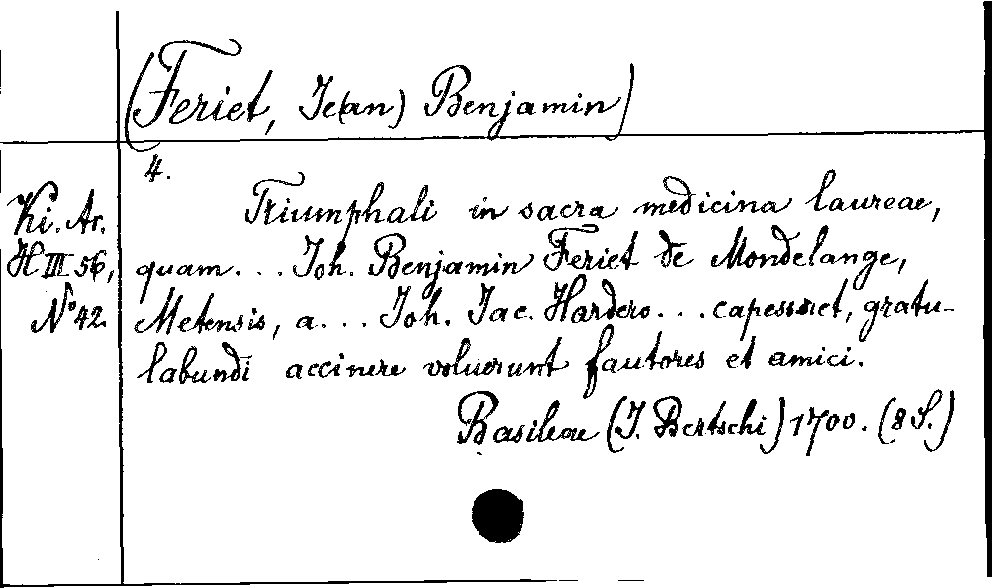 (Feriet, Je(an) Benjamin)
4.
Ki. Ar.
H III 56,
No 42.
Triumphali in sacra medicina laureae,
quam... Joh. Benjamin Feriet de Mondelange,
Metensis, a... Joh. Jac. Hardero... capesseret, gratu-
labundi accinere voluerunt fautores et amici.
Basileae (J. Bertschi) 1700. (8 S.)